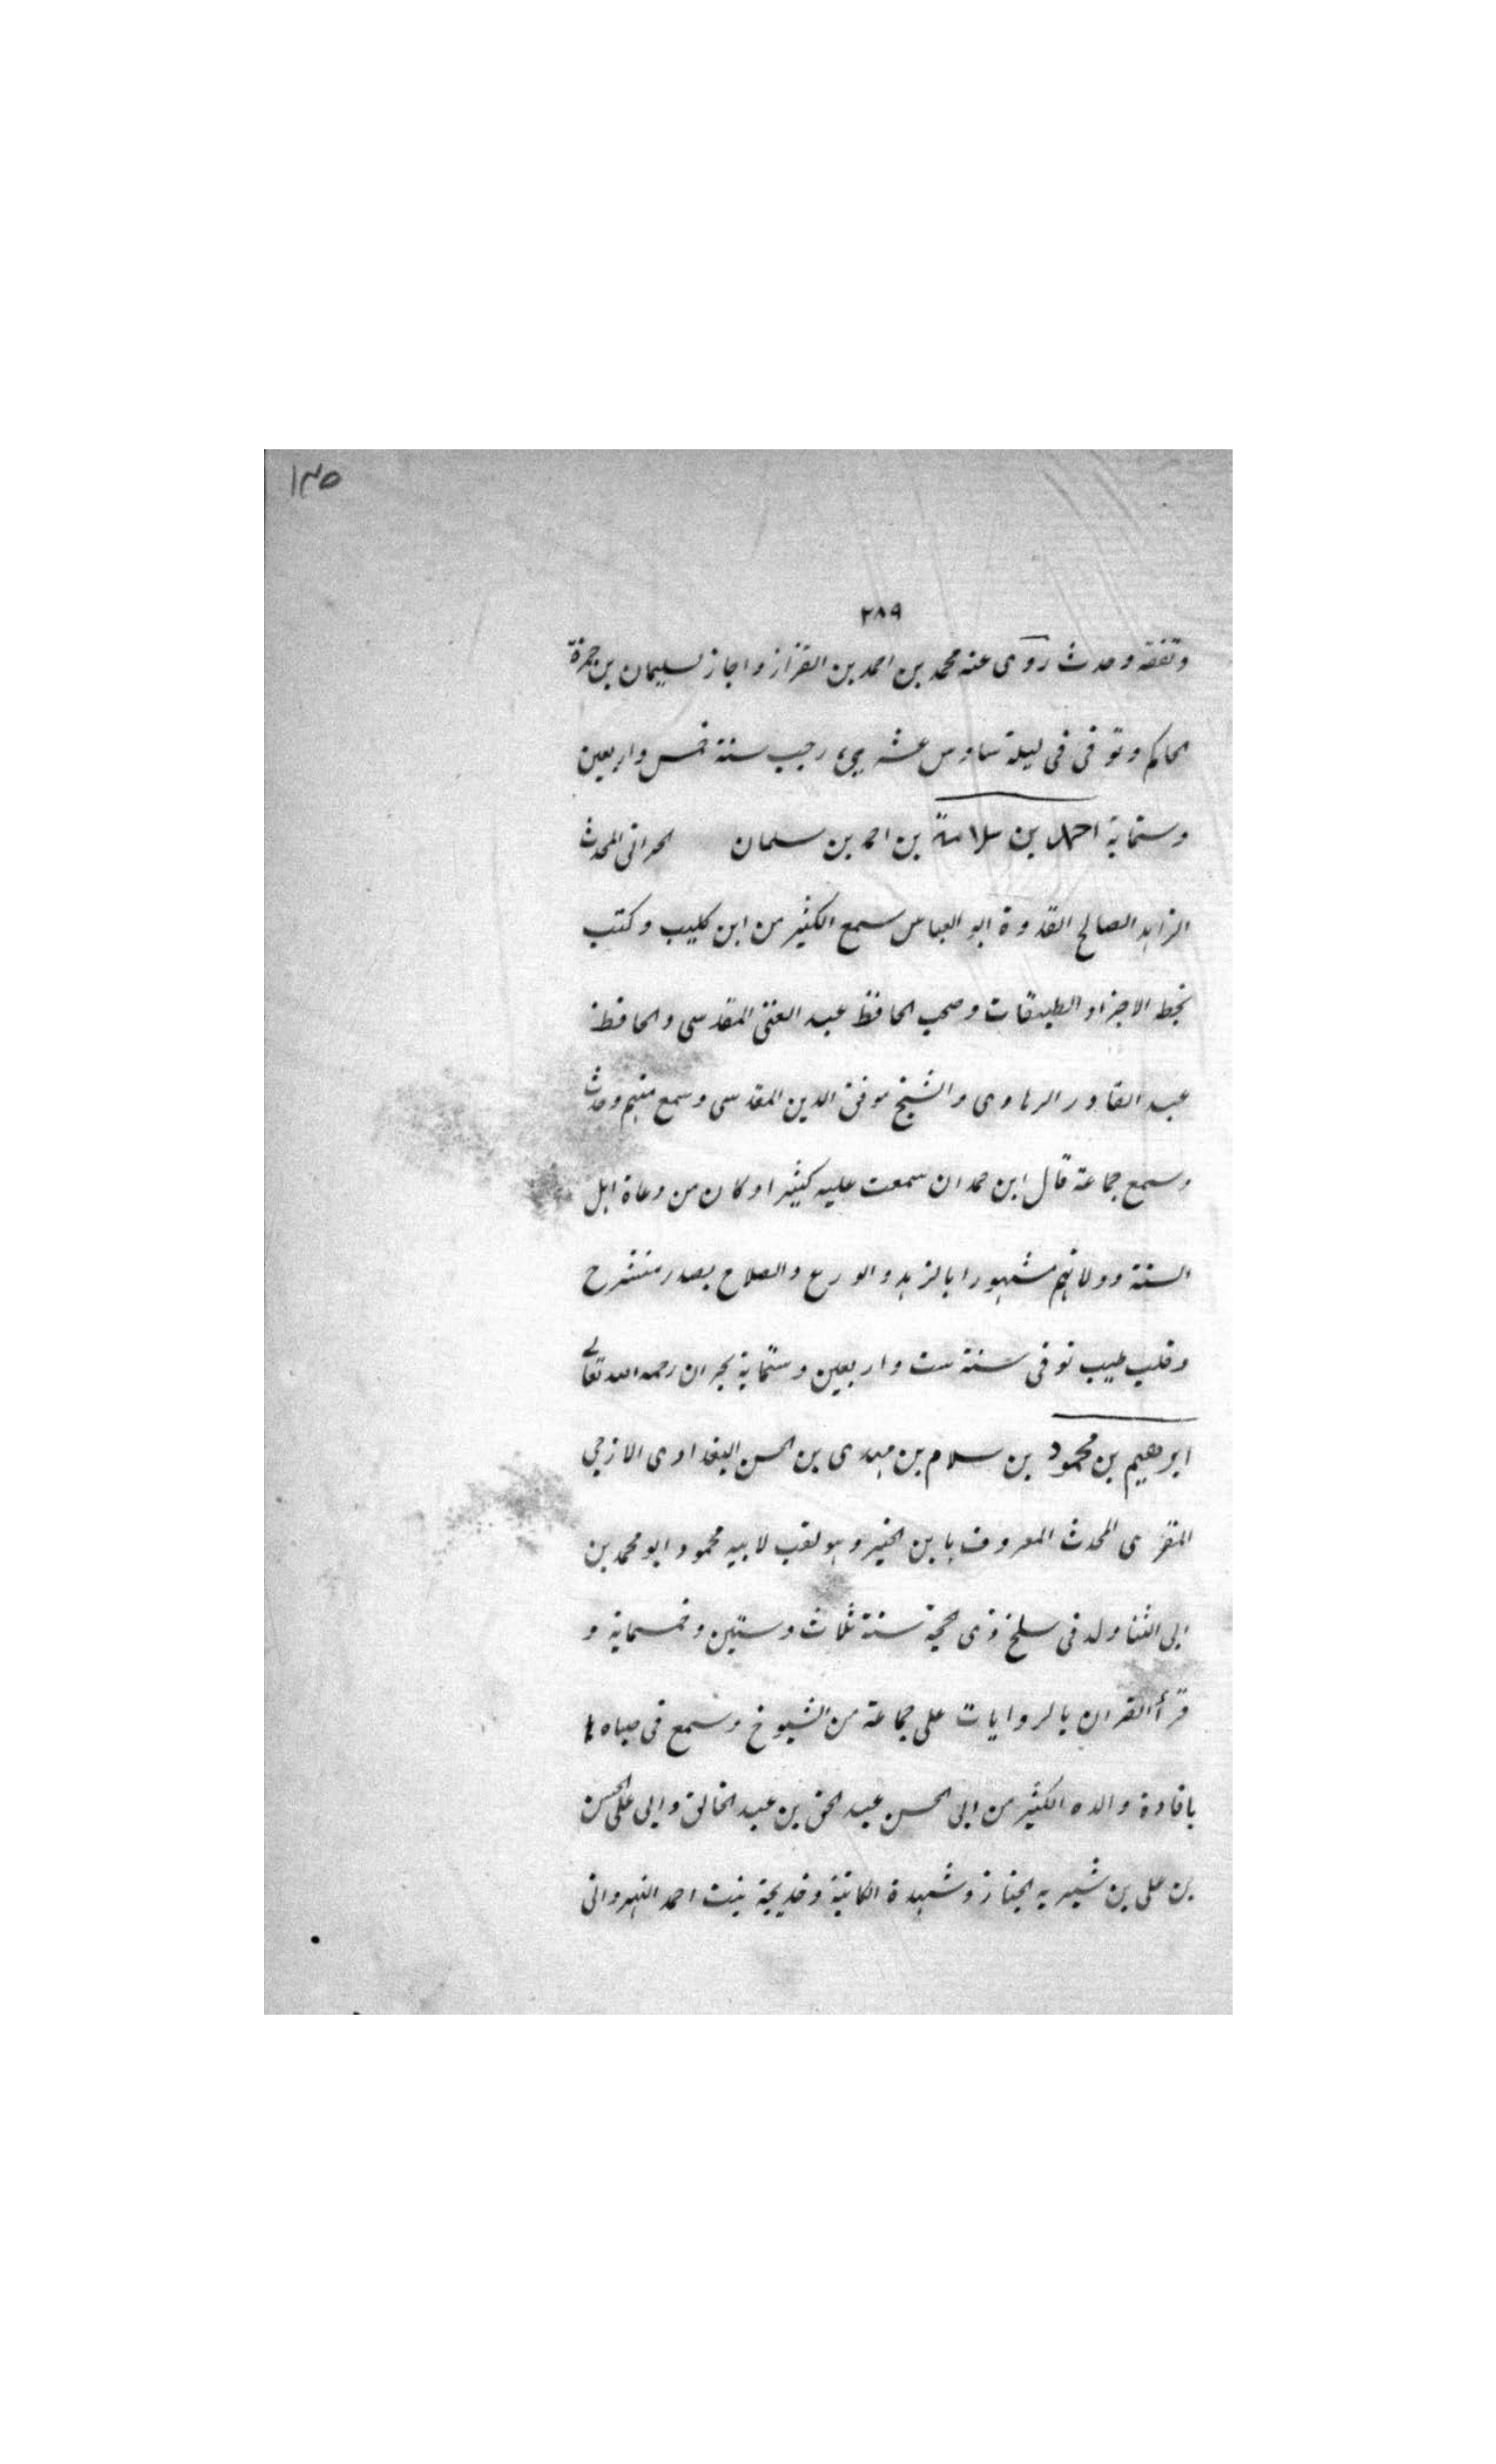 ١٣٥
٢٨٩
وتفقه وحدث روى عنه محمد بن احمد بن القزاز واجاز لسليمان بن حمزة
الحاكم وتوفى فى ليلة سادس عشرين رجب سنة خمس واربعين
وستماية احمد بن سلامة بن احمد بن سلمان الحرانى المحدث
الزاهد الصالح القدوة ابو العباس سمع الكثير من ابن كليب وكتب
بخطه الاجزاو الطبقات وصحب الحافظ عبد الغنى المقدسى والحافظ
عبد القادر الرهاوى والشيخ موفق الدين المقدسى وسمع منهم وحدث
وسمع جماعة قال ابن حمدان سمعت عليه كثيرا وكان من دعاة اهل
السنة وولاتهم مشهورا بالزهد والورع والصلاح بصدر منشرح
وقلب طيب توفى سنة ست واربعين وستماية بحران رحمه الله تعالى
ابرهيم بن محمود بن سلام بن مهدى بن الحسن البغدادى الازجى
المقرى المحدث المعروف بابن الخير وهو لقب لابيه محمود ابو محمد بن
ابى الثنا ولد فى سلخ ذى حجة سنة ثلاث وستين وخمسماية و
قرأ القران بالروايات على جماعة من الشيوخ وسمع فى صباه
بافادة والده الكثير من ابى الحسن عبد الحق بن عبد الخالق وابى على الحسن
بن على بن شيرويه الخباز وشهدة الكاتبة وخديجة بنت احمد النهروانى